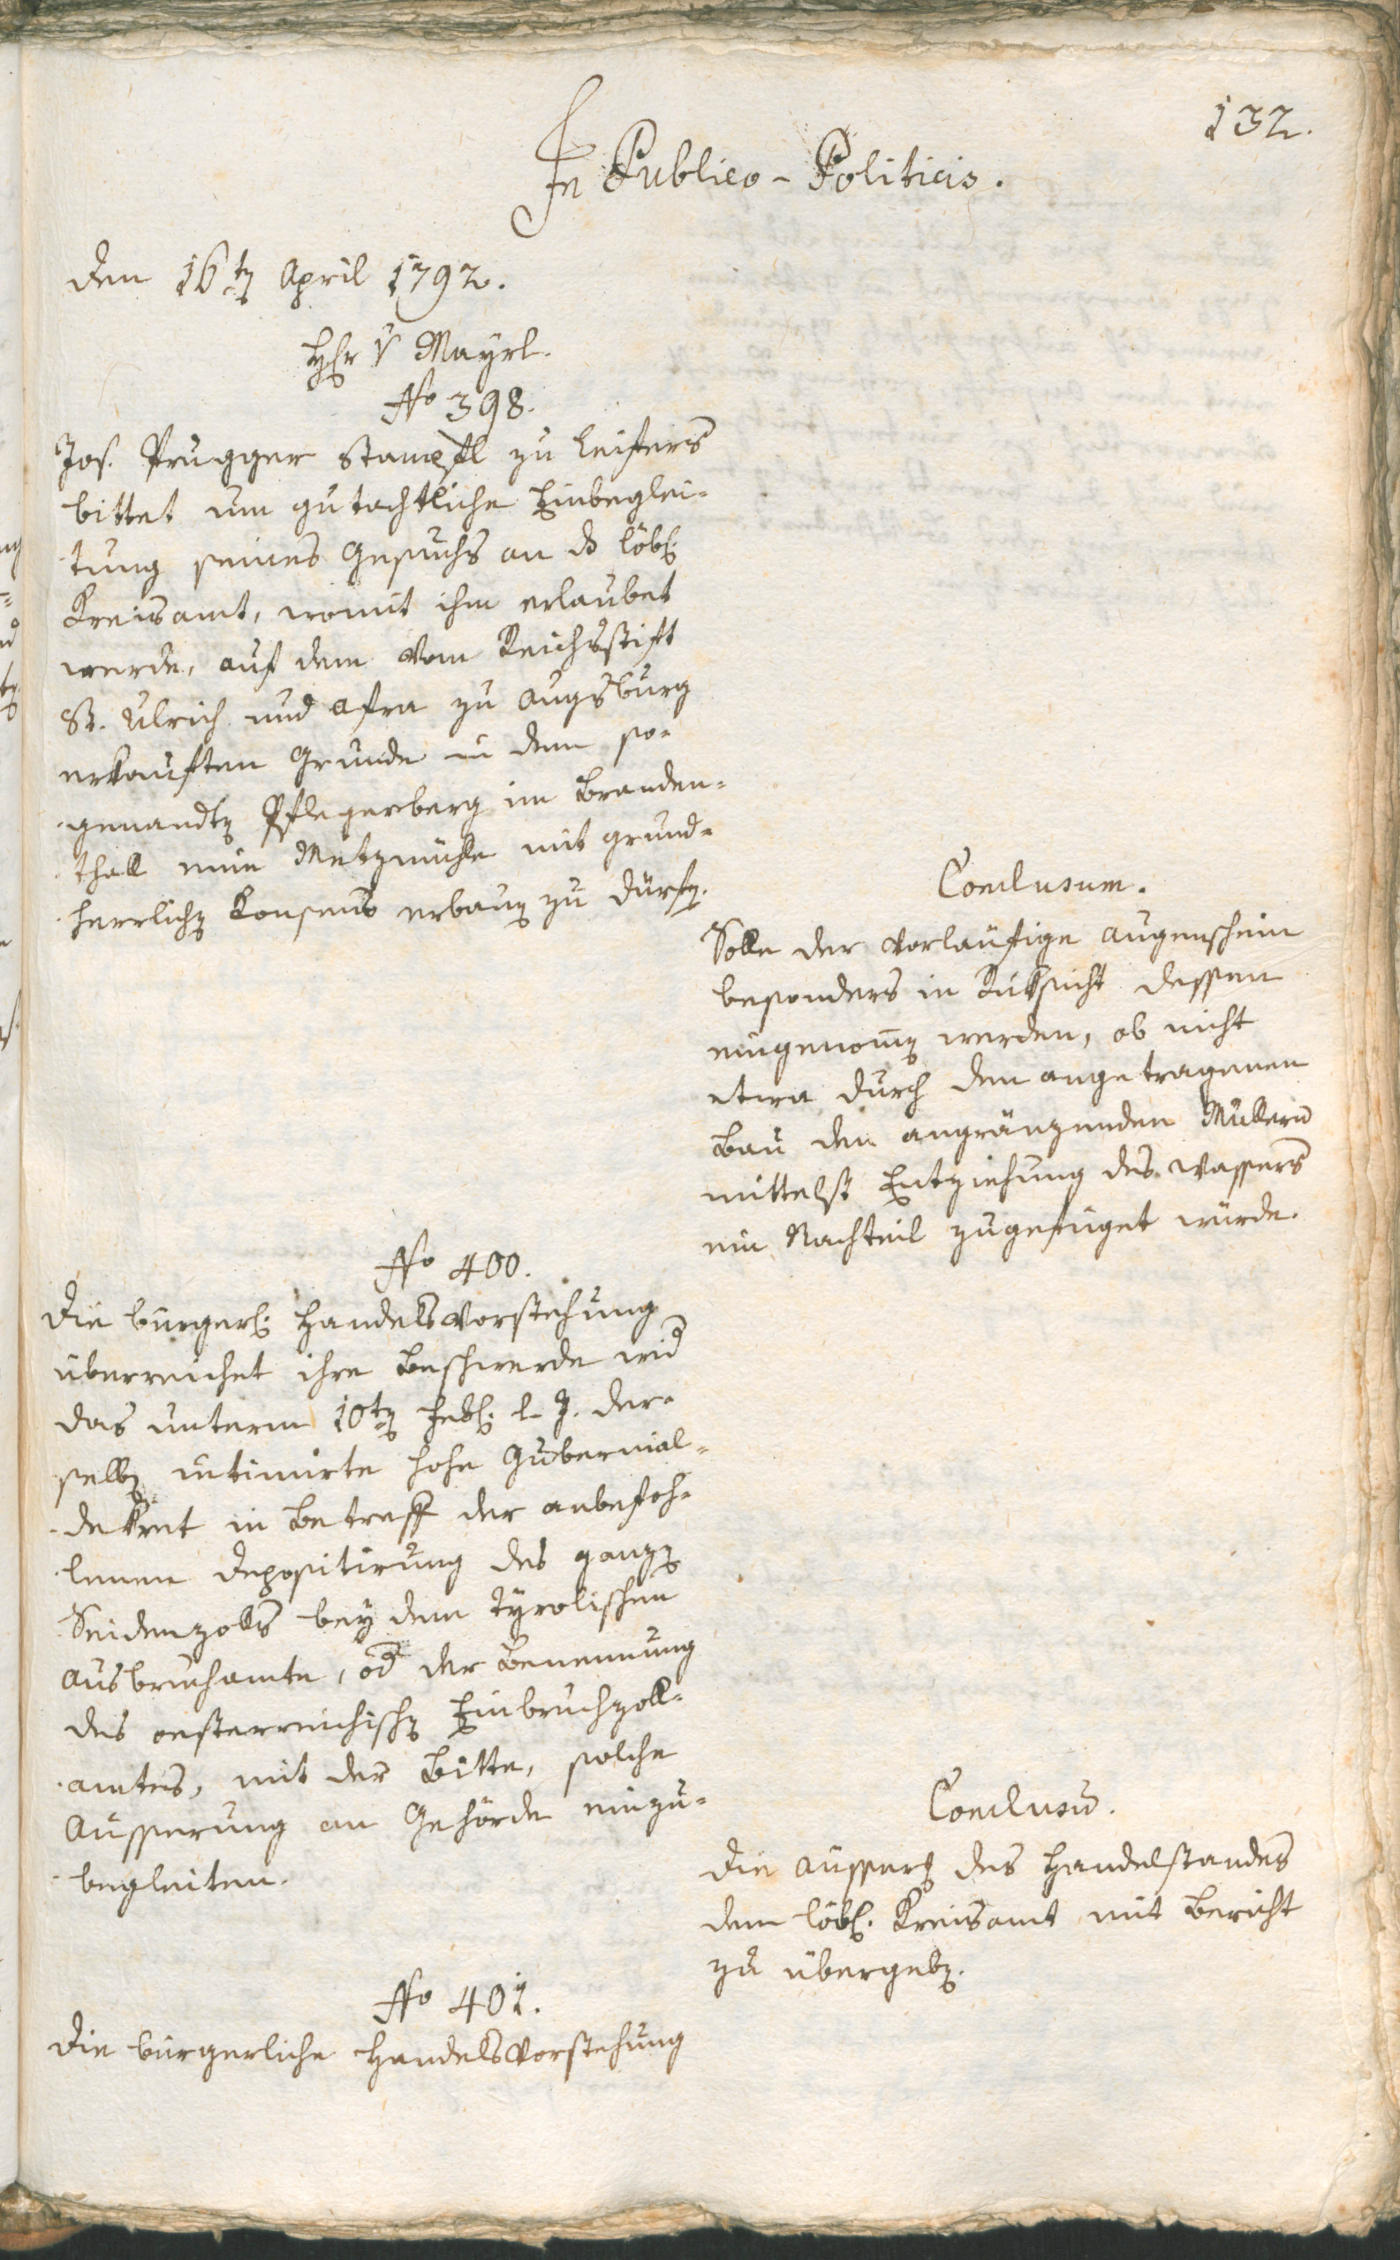 132.
In Publico-Politicis.
den 16tẽ April 1792.
Hr v Mayrl.
No 398.
Jos. Prugger Stampfl zu Leifers
bittet um gutachtliche Einbeglei-
tung seines Gesuchs an d löbl:
Kreisamt, womit ihm erlaubet
werde, auf dem vom Reichsstift
St. Ulrich und Afra zu Augsburg
erkauften Grunde in dem so-
genandtẽ Pflegerberg im Branden-
thall eine Metzmühle mit grund-
herrlichẽ Konsens erbauẽ zu dürfẽ.
Conclusum.
Solle der vorläufige Augenschein
besonders in Rüksicht dessen
eingenom̄ẽ werden, ob nicht
etwa durch den angetragenen
Bau den angränzenden Müllern
mittelst Entziehung des Wassers
ein Nachteil zugefüget würde.
No 400.
Die bürgerl: Handelsvorstehung
überreichet ihre Beschwerde wid
das unterm 10tẽ Febr: l. J. der-
selbẽ intimirte hohe Gubernial-
dekret in Betreff der anbefoh-
lenen Depositirung des ganzẽ
Seidenzolls bey dem tyrolischen
Ausbruchamte, od der Benennung
des oesterreichischẽ Einbruchzoll-
amtes, mit der Bitte, solche
Äusserung an Gehörde einzu-
begleiten.
Conclusū.
Die Äusserg des Handelstandes
dem löbl. Kreisamt mit Bericht
zu übergebẽ.
No 401.
Die bürgerliche Handelsvorstehung